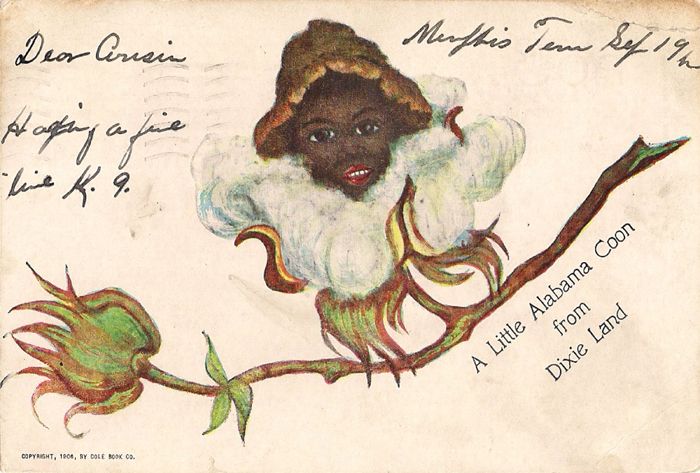 Dear Cousin
Memphis Tenn Sep 19
Having a fine
time K. G.
A Little Alabama Coon
from
Dixie Land
COPYRIGHT, 1906, BY COLE BOOK CO.